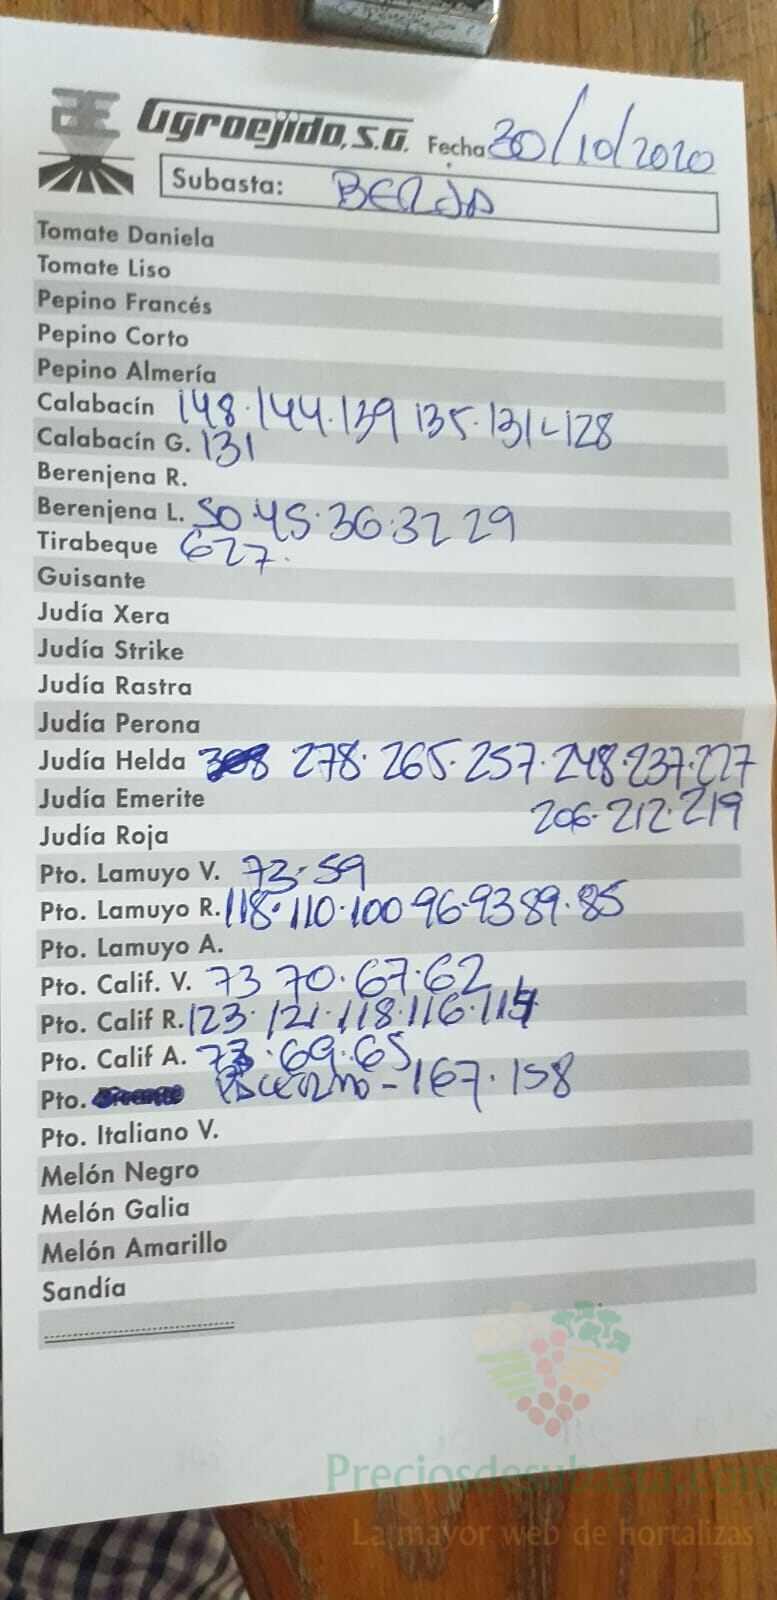 Agroejido, S.A. Fecha 30/10/2020
Subasta: BERJA
Tomate Daniela
Tomate Liso
Pepino Francés
Pepino Corto
Pepino Almería
Calabacín 148·144·139 135·131-128
Calabacín G. 131
Berenjena R.
Berenjena L. 50·45·36·32 29
Tirabeque 627·
Guisante
Judía Xera
Judía Strike
Judía Rastra
Judía Perona
Judía Helda 308 278·265·257·248·237·227
Judía Emerite 206·212·219
Judía Roja
Pto. Lamuyo V. 73·59
Pto. Lamuyo R. 118·110·100 96·93 89·85
Pto. Lamuyo A.
Pto. Calif. V. 73 70·67·62
Pto. Calif R. 123·121·118·116·114
Pto. Calif A. 73·69·65
Pto. - 167·158
Pto. Italiano V.
Melón Negro
Melón Galia
Melón Amarillo
Sandía
Preciosdesubasta.com
La mayor web de hortalizas